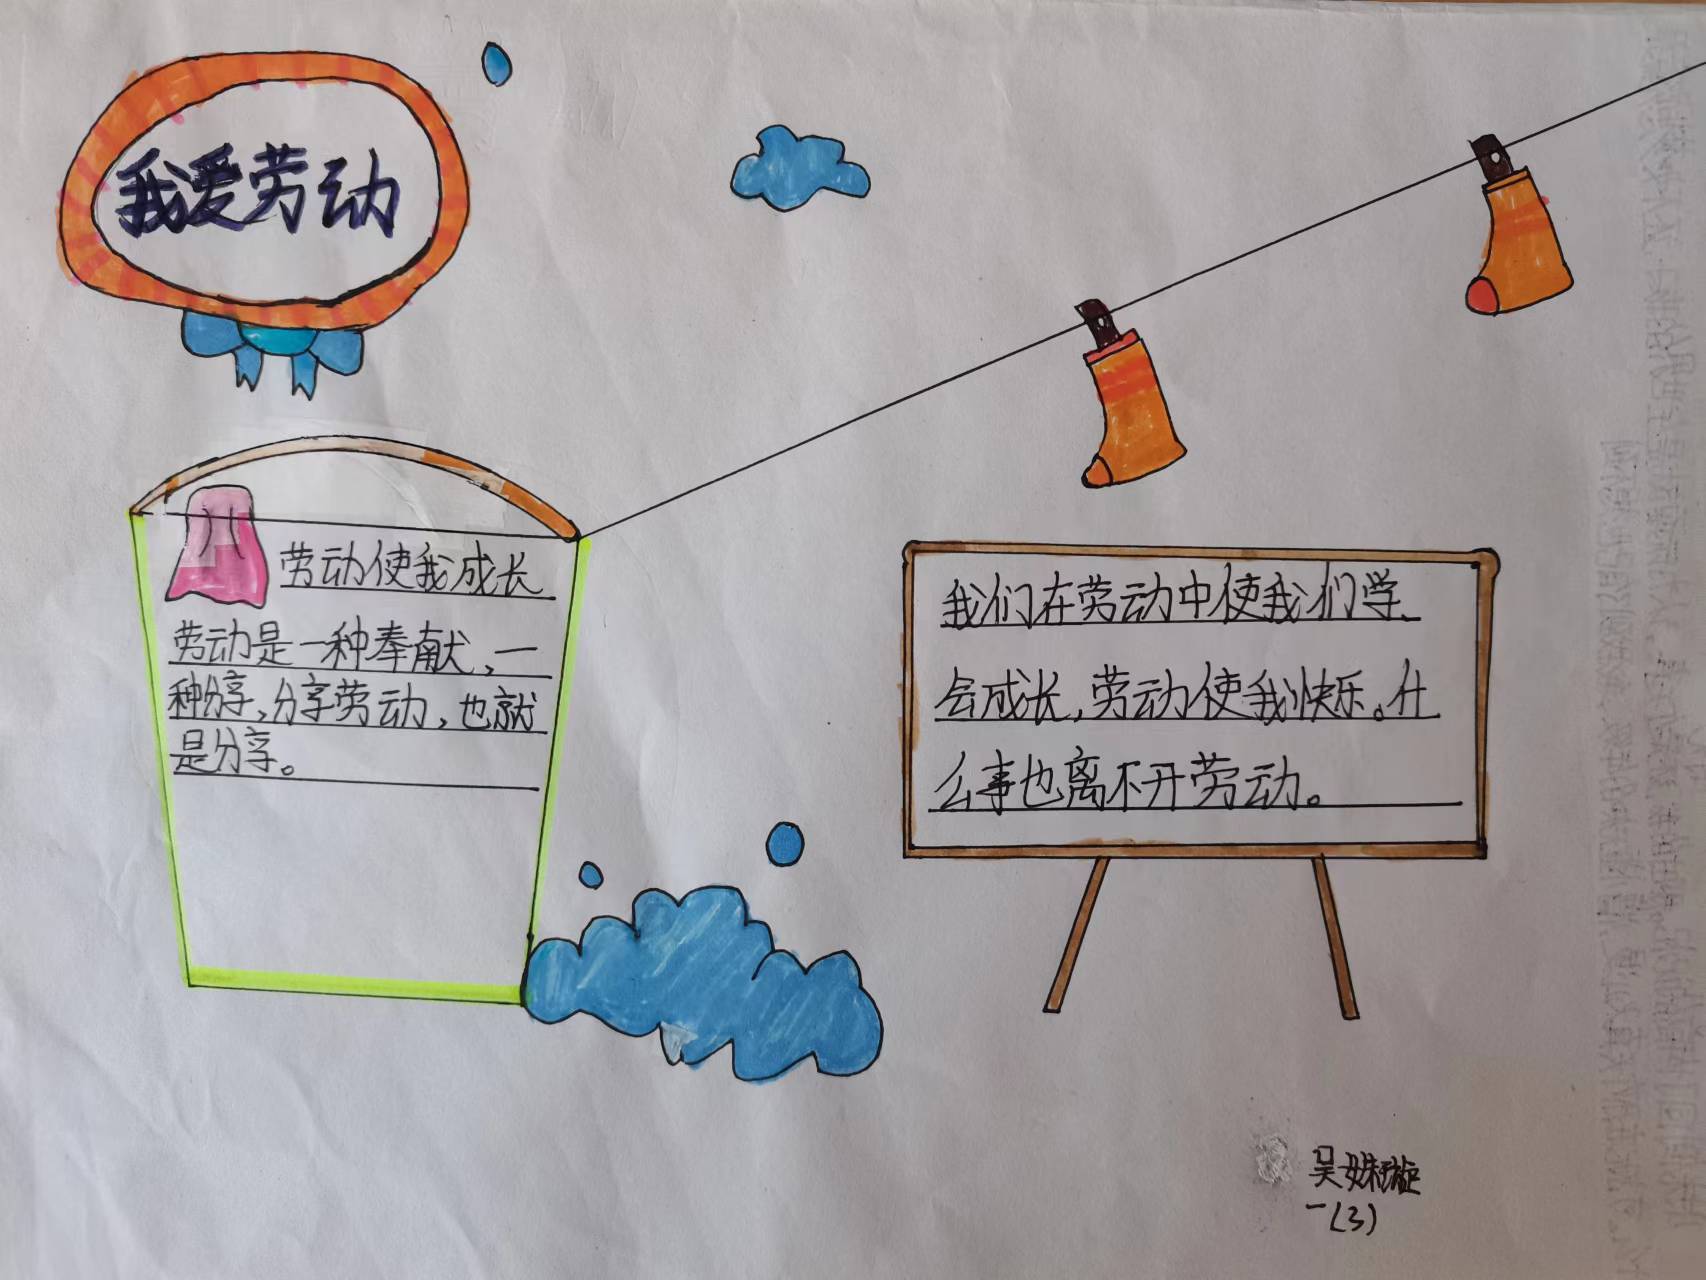 我爱劳动
劳动使我成长
劳动是一种奉献,一
种分享,分享劳动,也就
是分享。
我们在劳动中使我们学
会成长,劳动使我快乐。什
么事也离不开劳动。
吴姝璇
一(3)